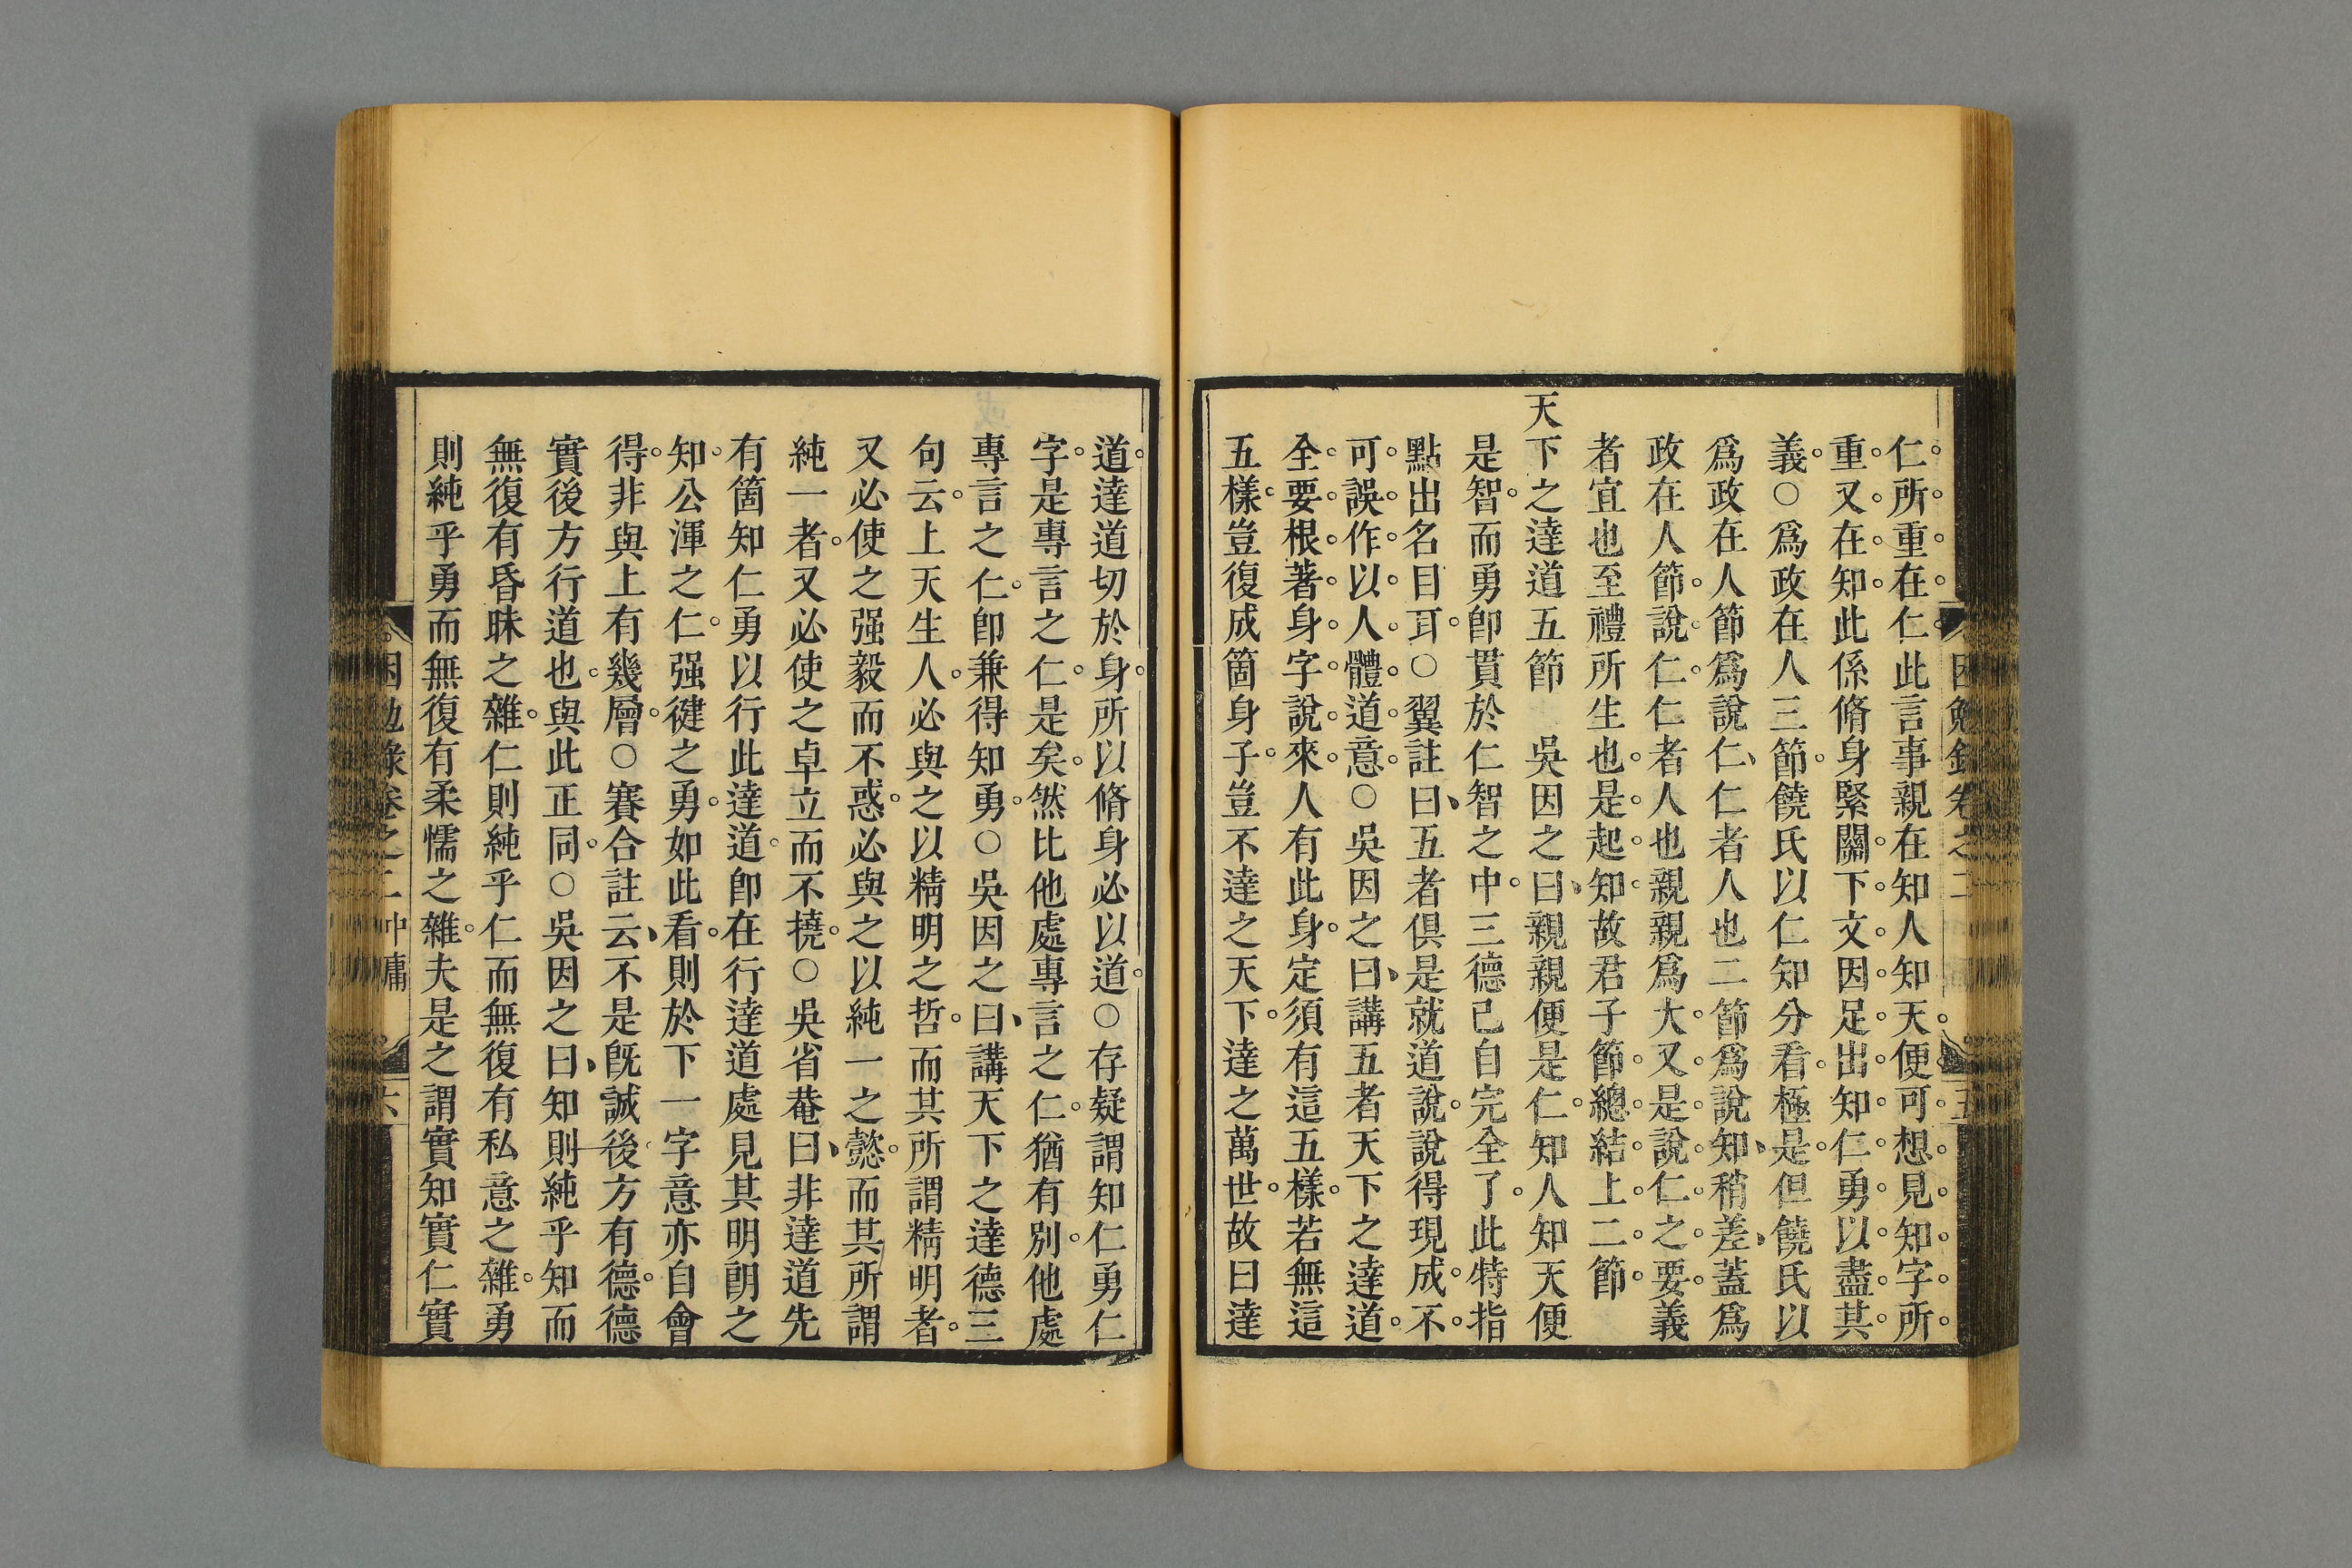 仁所重在仁此言事親在知人知天便可想見知字所
重又在知此係脩身緊關下文因足出知仁勇以盡其
義○爲政在人三節饒氏以仁知分看極是但饒氏以
爲政在人節爲說仁仁者人也二節爲說知稍差蓋爲
政在人節說仁仁者人也親親爲大又是說仁之要義
者宜也至禮所生也是起知故君子節總結上二節
天下之達道五節　吳因之曰親親便是仁知人知天便
是智而勇卽貫於仁智之中三德已自完全了此特指
點出名目耳○翼註曰五者俱是就道說說得現成不
可誤作以人體道意○吳因之曰講五者天下之達道
全要根著身字說來人有此身定須有這五樣若無這
五樣豈復成箇身子豈不達之天下達之萬世故曰達
道達道切於身所以脩身必以道○存疑謂知仁勇仁
字是專言之仁是矣然比他處專言之仁猶有別他處
專言之仁卽兼得知勇○吳因之曰講天下之達德三
句云上天生人必與之以精明之哲而其所謂精明者
又必使之强毅而不惑必與之以純一之懿而其所謂
純一者又必使之卓立而不撓○吳省菴曰非達道先
有箇知仁勇以行此達道卽在行達道處見其明朗之
知公渾之仁强健之勇如此看則於下一字意亦自會
得非與上有幾層○賽合註云不是旣誠後方有德德
實後方行道也與此正同○吳因之曰知則純乎知而
無復有昏昧之雜仁則純乎仁而無復有私意之雜勇
則純乎勇而無復有柔懦之雜夫是之謂實知實仁實
困勉錄卷之二中庸
六